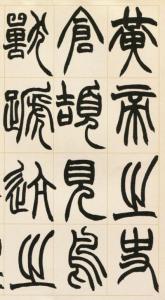 黄帝之史
倉頡見鳥
獸蹏迒之